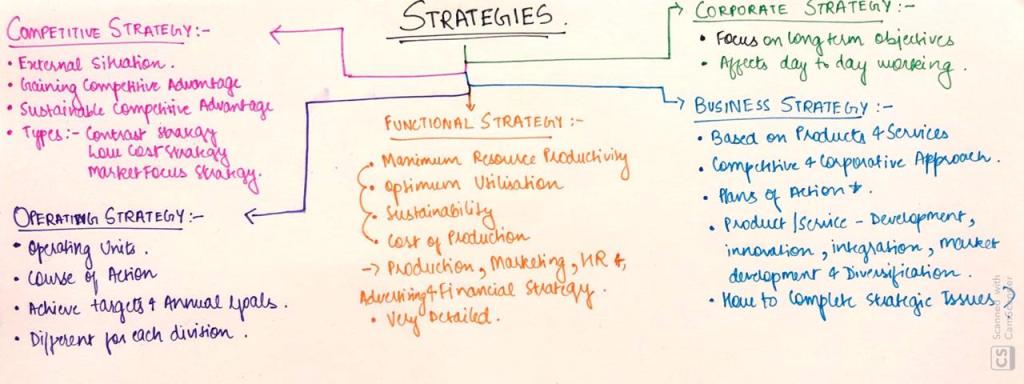 STRATEGIES.
COMPETITIVE STRATEGY:-
• External Situation.
• Gaining Competitive Advantage
• Sustainable Competitive Advantage
• Types:- Contrast Strategy
Low Cost Strategy
Market Focus Strategy.
OPERATING STRATEGY:-
• Operating Units.
• Course of Action
• Achieve targets & Annual Goals.
• Different for each division.
FUNCTIONAL STRATEGY:-
• Maximum Resource Productivity
• Optimum Utilisation
• Sustainability
• Cost of Production
-> Production, Marketing, HR &,
Advertising & Financial Strategy.
• Very Detailed.
CORPORATE STRATEGY:-
• Focus on long term objectives
• Affects day to day working.
BUSINESS STRATEGY:-
• Based on Products & Services
• Competitive & Corporative Approach.
• Plans of Action
• Product/Service - Development,
innovation, integration, market
development & Diversification.
• How to Complete Strategic Issues
CS
Scanned with
CamScanner